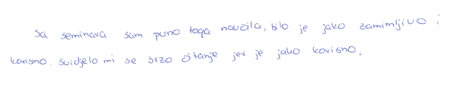 Sa seminara sam puno toga naučila, bilo je jako zanimljivo i
korisno. Svidjelo mi se brzo čitanje jer je jako korisno.